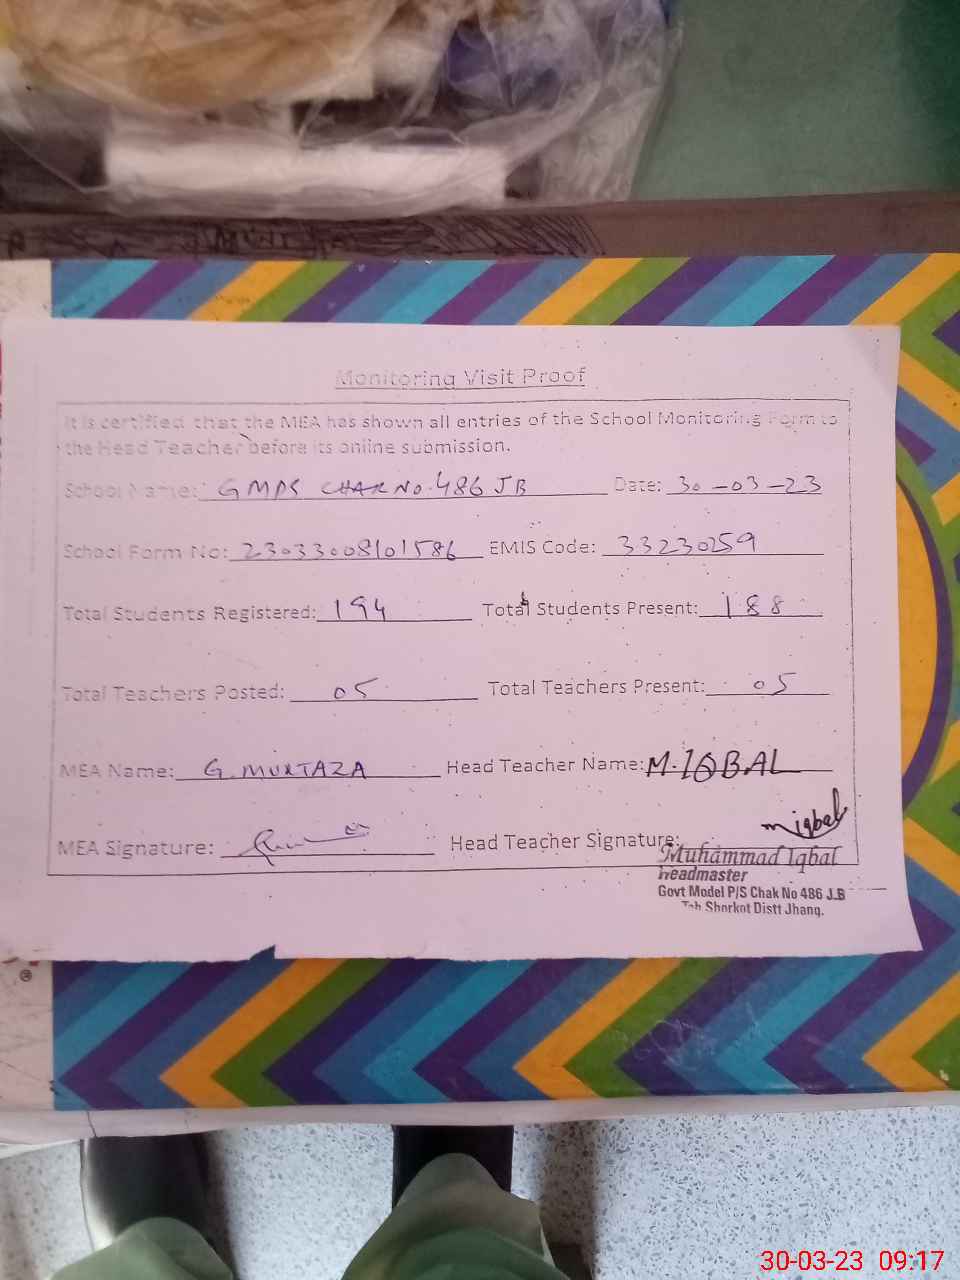 Monitoring Visit Proof
It is certified that the MEA has shown all entries of the School Monitoring Form to
the Head Teacher before its online submission.
School Name: GMPS CHAK NO. 486 JB Date: 30-03-23
School Form No: 23033008101586 EMIS Code: 33230259
Total Students Registered: 194 Total Students Present: 188
Total Teachers Posted: 05 Total Teachers Present: 05
MEA Name: G. MURTAZA Head Teacher Name: M. IQBAL
miqbal
MEA Signature: Head Teacher Signature:
Muhammad Iqbal
Headmaster
Govt Model P/S Chak No 486 J.B
Teh Shorkot Distt Jhang.
®
30-03-23 09:17